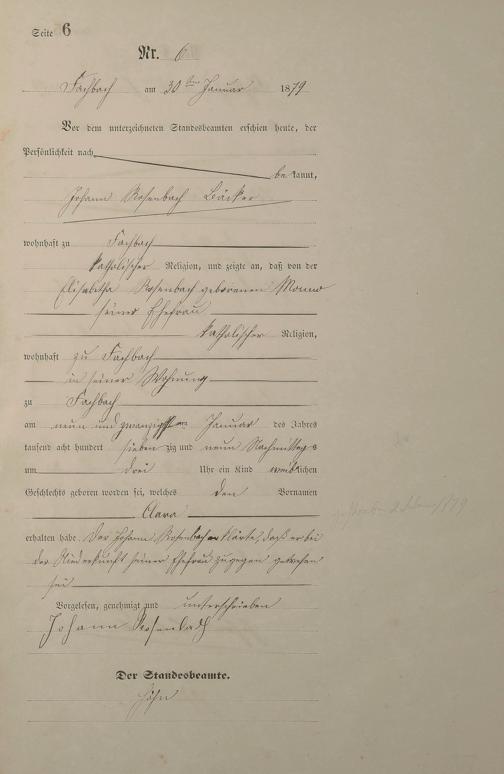 Seite 6
Nr. 6
Fachbach am 30ten Januar 1879
Vor dem unterzeichneten Standesbeamten erschien heute, der
Persönlichkeit nach
bekannt,
Johann Rosenbach Bäcker
wohnhaft zu Fachbach
katholischer Religion, und zeigte an, daß von der
Elisabetha Rosenbach geborenen
seiner Ehefrau
katholischer Religion,
wohnhaft zu Fachbach
in seiner Wohnung
zu Fachbach
am neun und zwanzigsten Januar des Jahres
tausend acht hundert siebenzig und neun Nachmittags
um drei Uhr ein Kind weiblichen
Geschlechts geboren worden sei, welches den Vornamen
Clara
erhalten habe. Der Johann Rosenbach erklärte, daß er bei
der Niederkunft seiner Ehefrau zugegen gewesen
sei
Vorgelesen, genehmigt und unterschrieben
Johann Rosenbach
Der Standesbeamte.
Höhn